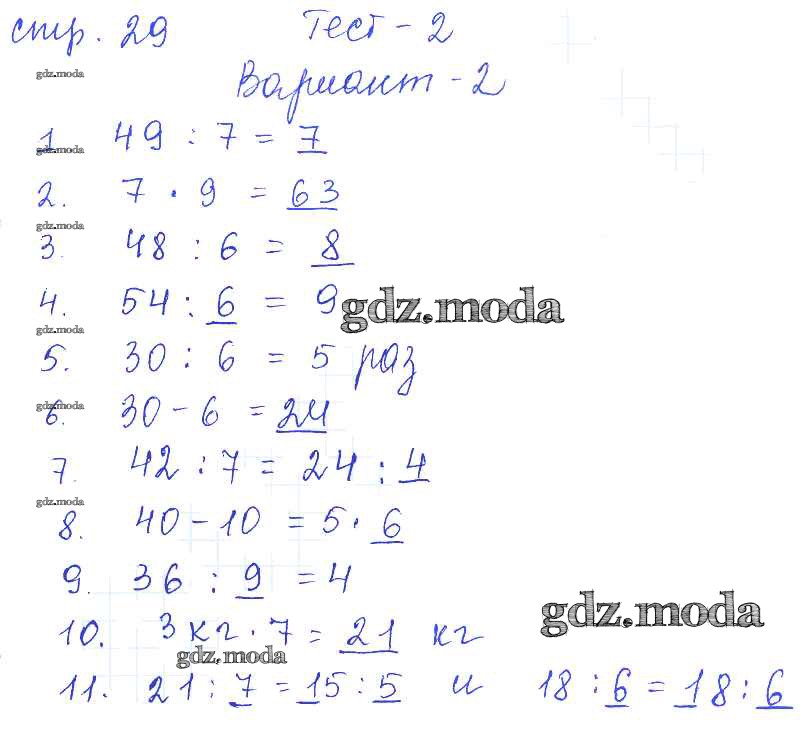 стр. 29 Тест - 2
gdz.moda
Вариант - 2
1 49 : 7 = 7
gdz.moda
2. 7 · 9 = 63
gdz.moda
3. 48 : 6 = 8
4. 54 : 6 = 9
gdz.moda
gdz.moda
5. 30 : 6 = 5 раз
gdz.moda
6. 30 - 6 = 24
7. 42 : 7 = 24 : 4
gdz.moda
8. 40 - 10 = 5 · 6
9. 36 : 9 = 4
gdz.moda
10. 3 кг · 7 = 21 кг
gdz.moda
11. 21 : 7 = 15 : 5 и 18 : 6 = 18 : 6